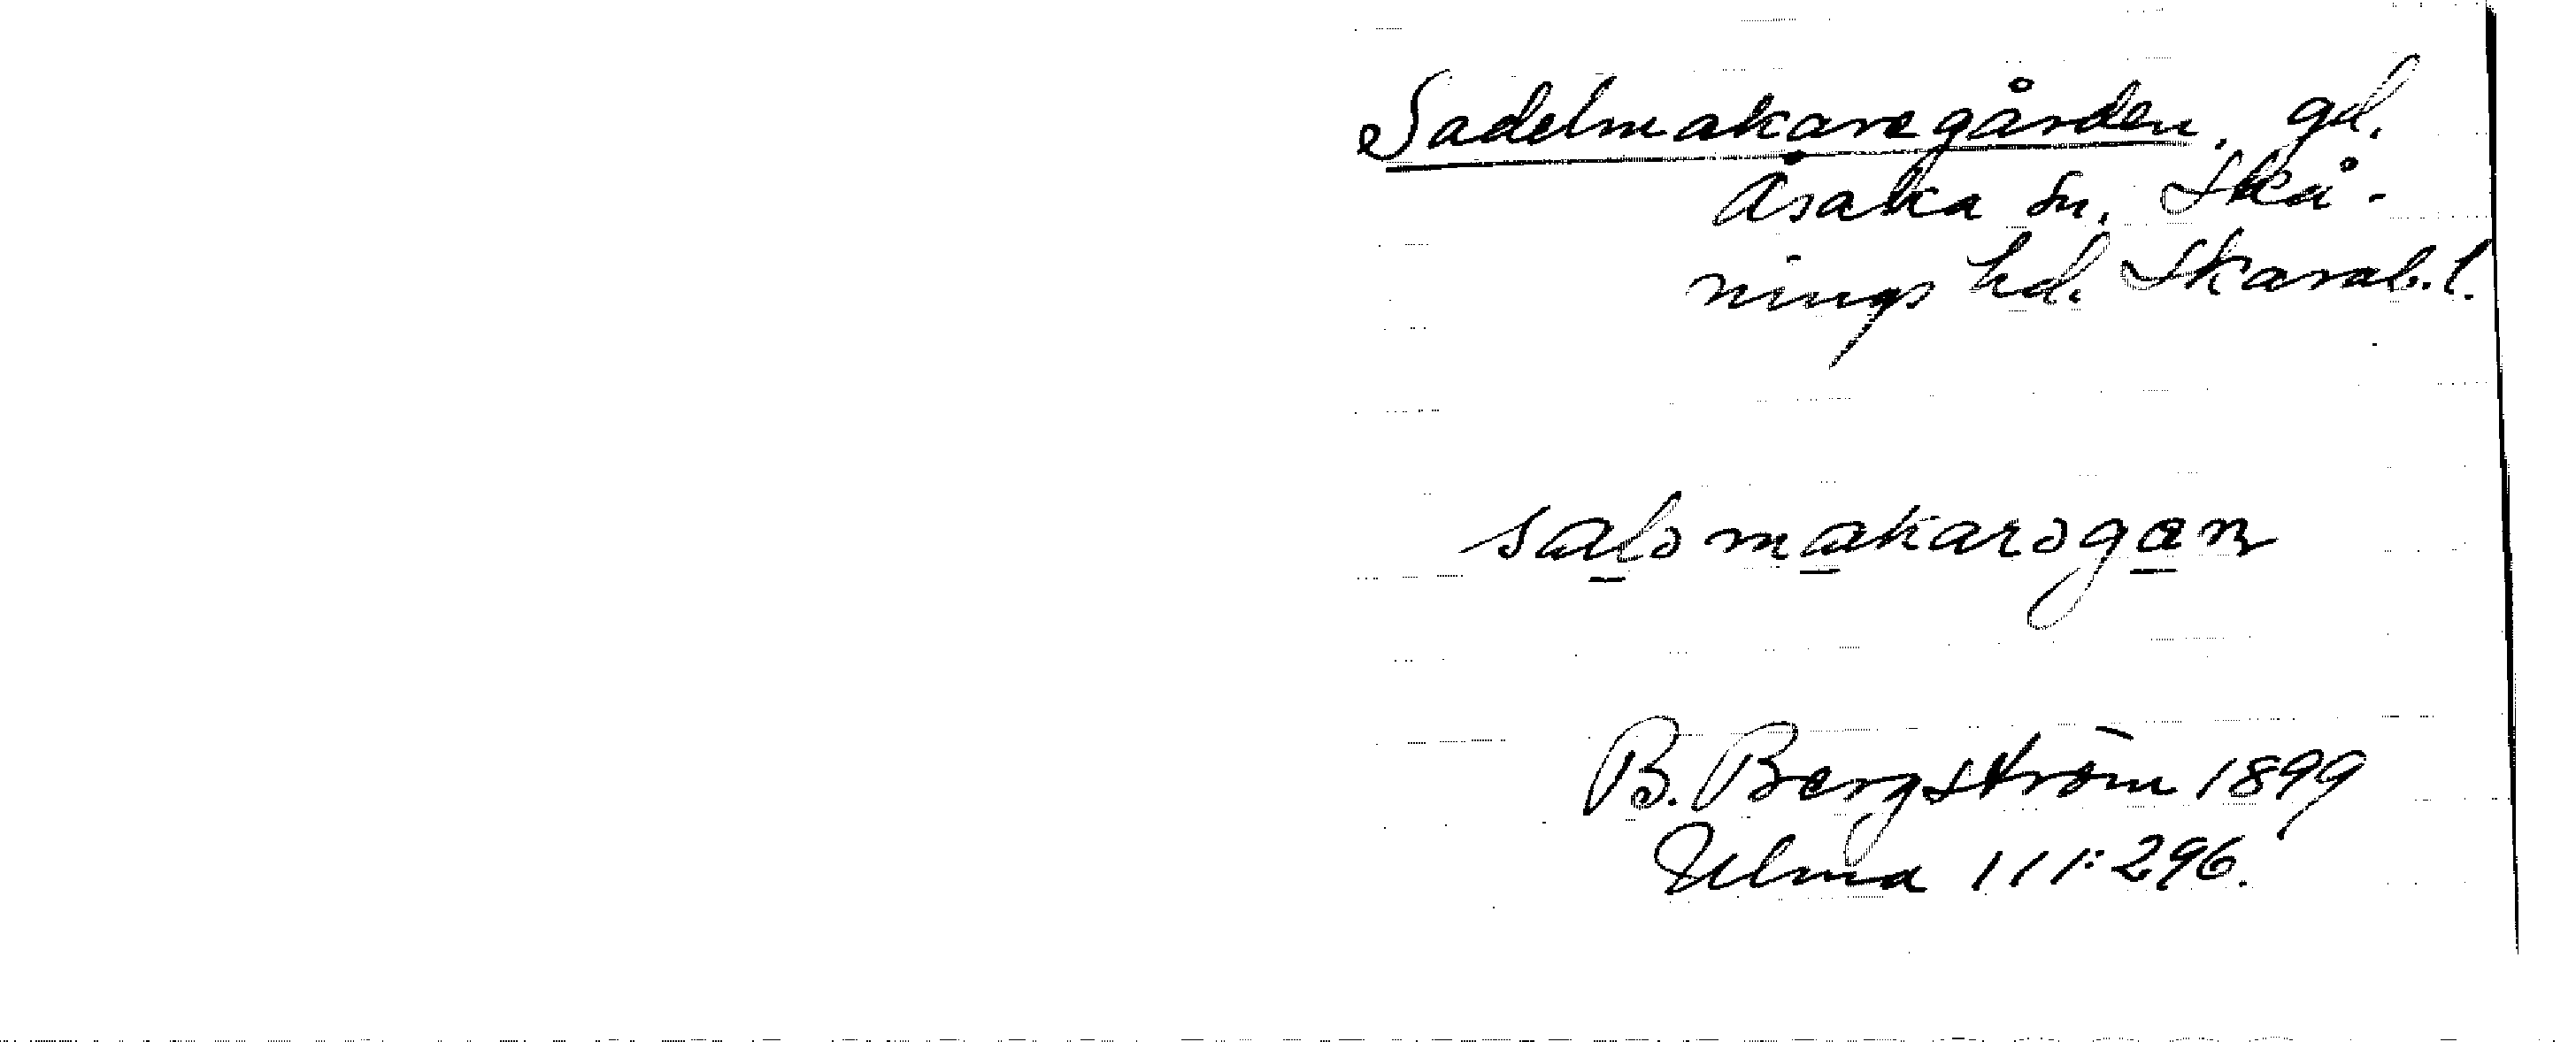 Sadelmakaregården, gd.
Åsaka sn. Skå-
nings hd. Skarab. l.
saləmakarəgan
B. Bergström 1899
Ulma 111:296.